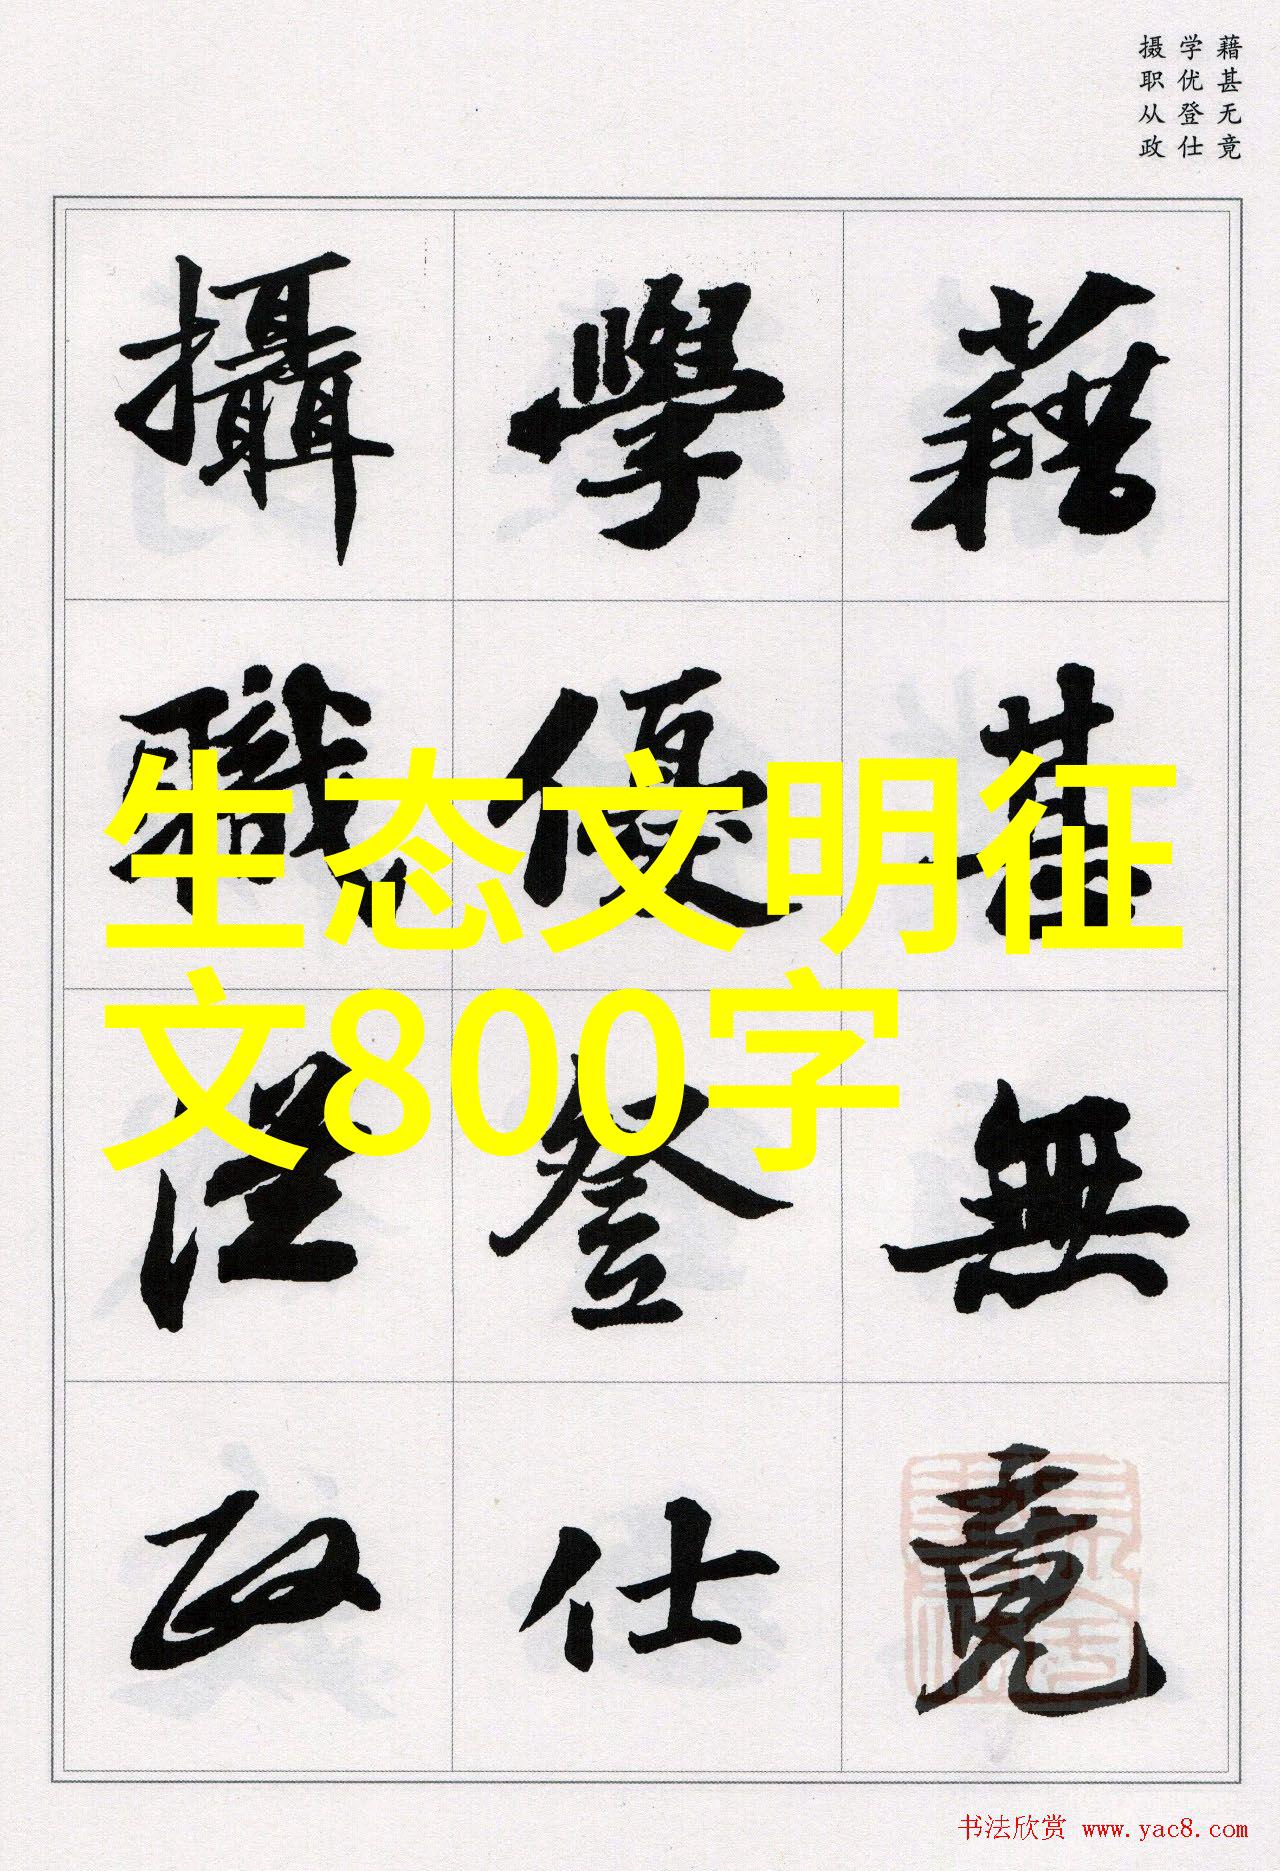 藉甚无竟
学优登仕
摄职从政
藉甚無竟
學優登仕
攝職從政
生态文明征
文800字
书法欣赏 www.yac8.com